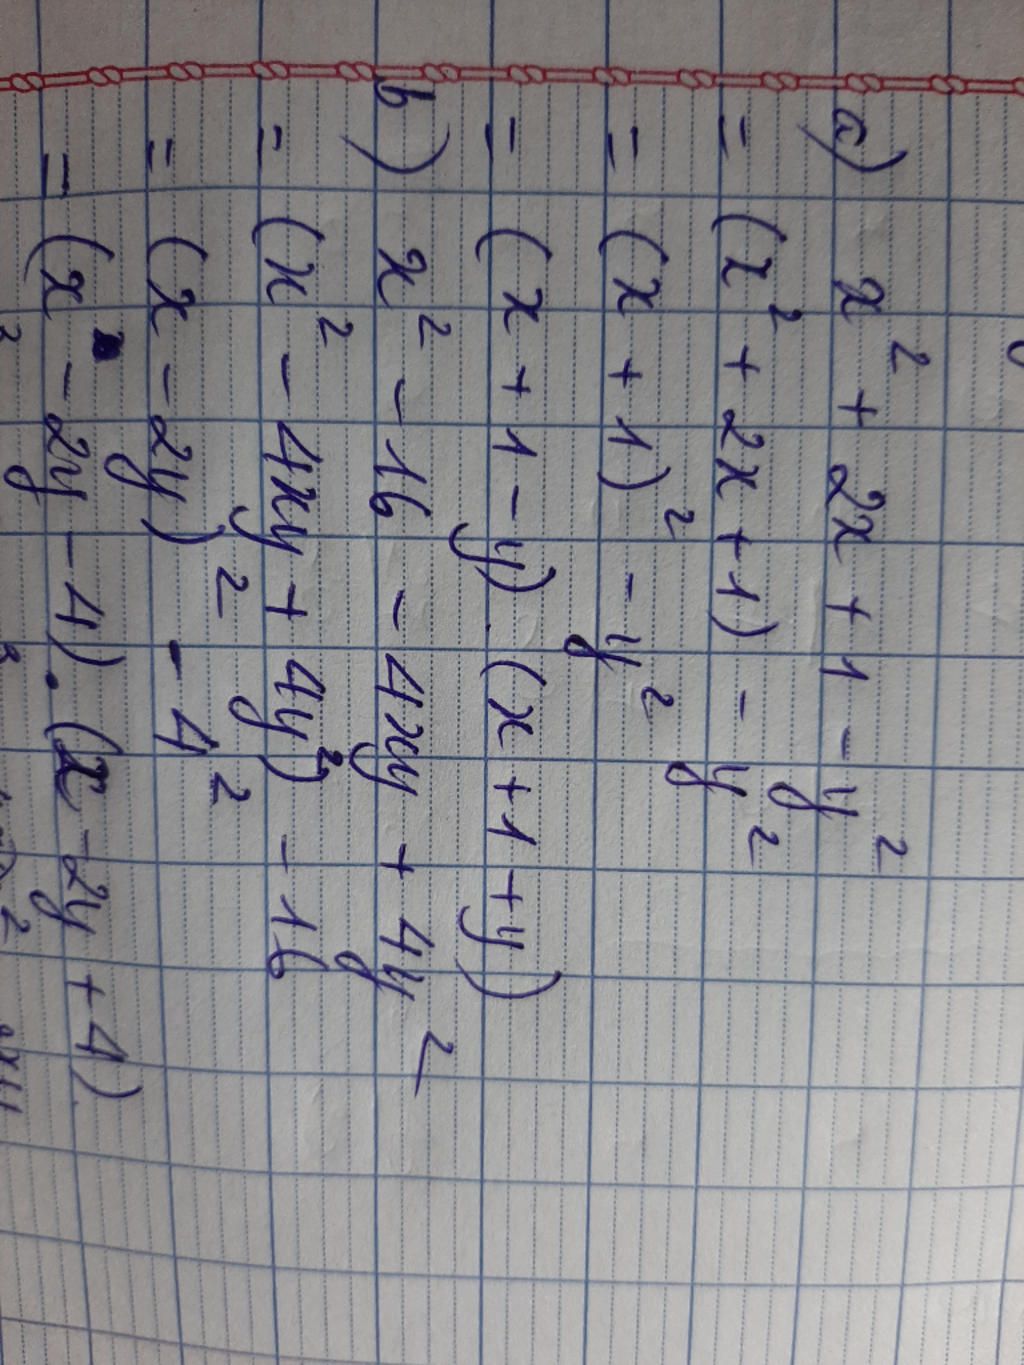 a) x² + 2x + 1 - y²
= (x² + 2x + 1) - y²
= (x + 1)² - y²
= (x + 1 - y) . (x + 1 + y)
b) x² - 16 - 4xy + 4y²
= (x² - 4xy + 4y²) - 16
= (x - 2y)² - 4²
= (x - 2y - 4) . (x - 2y + 4)